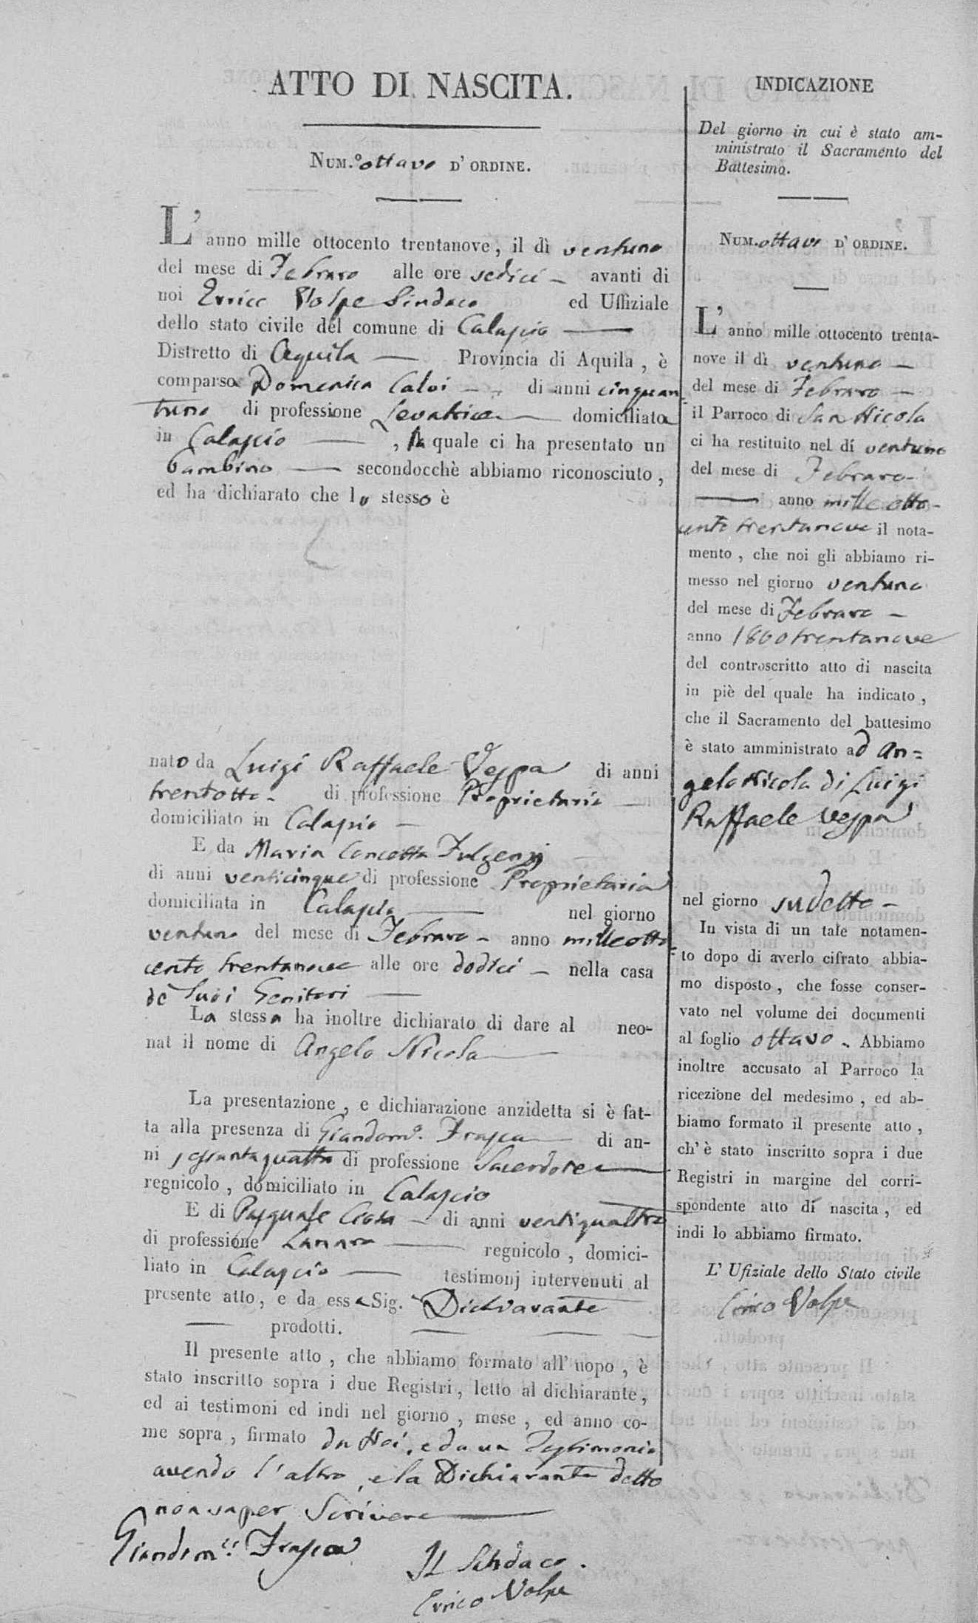 ATTO DI NASCITA.
NUM.° ottavo D' ORDINE.
L' anno mille ottocento trentanove, il dì ventuno
del mese di Febraro alle ore sedici – avanti di
noi Errico Volpe Sindaco ed Uffiziale
dello stato civile del comune di Calascio —
Distretto di Aquila — Provincia di Aquila, è
comparsa Domenica – di anni cinquan
tuno di professione Levatrice — domiciliata
in Calascio — , la quale ci ha presentato un
bambino — secondocchè abbiamo riconosciuto,
ed ha dichiarato che lo stesso è
nato da Luigi Raffaele Vespa di anni
trentotto – di professione Proprietario —
domiciliato in Calascio —
E da Maria Concetta Fulgenzj
di anni venticinque di professione Proprietaria
domiciliata in Calascio — nel giorno
ventuno del mese di Febraro – anno mille otto=
cento trentanove alle ore dodici – nella casa
de' suoi Genitori —
La stessa ha inoltre dichiarato di dare al neo-
nat il nome di Angelo Nicola —
La presentazione, e dichiarazione anzidetta si è fat-
ta alla presenza di Giandom.° Frasca — di an-
ni sessantaquattro di professione Sacerdote —
regnicolo, domiciliato in Calascio
E di Pasquale – di anni ventiquattro
di professione Lanaro — regnicolo, domici-
liato in Calascio — testimonj intervenuti al
presente atto, e da essa Sig. Dichiarante
— prodotti. — — —
Il presente atto, che abbiamo formato all' uopo, è
stato inscritto sopra i due Registri, letto al dichiarante,
ed ai testimoni ed indi nel giorno, mese, ed anno co-
me sopra, firmato da Noi, e da un Testimonio
avendo l'altro, e la Dichiarante detto
non saper Scrivere —
Giandom.co Frasca
Il Sindaco.
Errico Volpe
INDICAZIONE
Del giorno in cui è stato am-
ministrato il Sacramento del
Battesimo.
NUM. ottavo D' ORDINE.
L' anno mille ottocento trenta-
nove il dì ventuno —
del mese di Febraro —
il Parroco di San Nicola
ci ha restituito nel dì ventuno
del mese di Febraro –
— anno mille otto-
cento trentanove il nota-
mento, che noi gli abbiamo ri-
messo nel giorno ventuno
del mese di Febraro —
anno 1800trentanove
del controscritto atto di nascita
in piè del quale ha indicato,
che il Sacramento del battesimo
è stato amministrato ad An=
gelo Nicola di Luigi
Raffaele Vespa
nel giorno sudetto –
In vista di un tale notamen-
to dopo di averlo cifrato abbia-
mo disposto, che fosse conser-
vato nel volume dei documenti
al foglio ottavo. Abbiamo
inoltre accusato al Parroco la
ricezione del medesimo, ed ab-
biamo formato il presente atto,
ch' è stato inscritto sopra i due
Registri in margine del corri-
spondente atto di nascita, ed
indi lo abbiamo firmato.
L' Ufiziale dello Stato civile
Errico Volpe